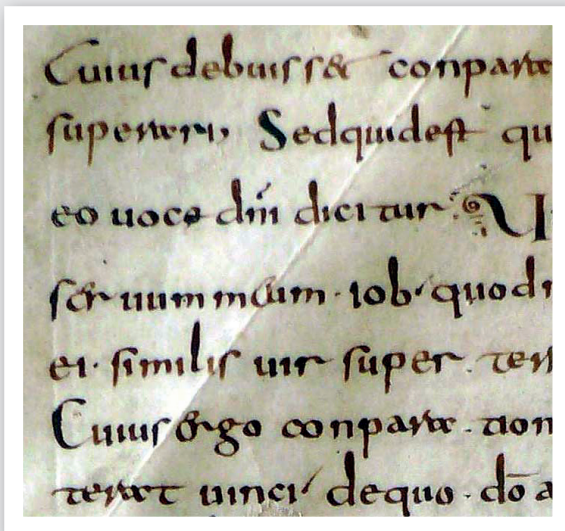 Cuius debuisset conpara
superari, Sed quid est qu
eo uoce dn̄i dicitur : U
seruum meum · iob · quod n
ei · similis uir super · terr
Cuius ergo conpara · tion
terat uinci dequo · dō a